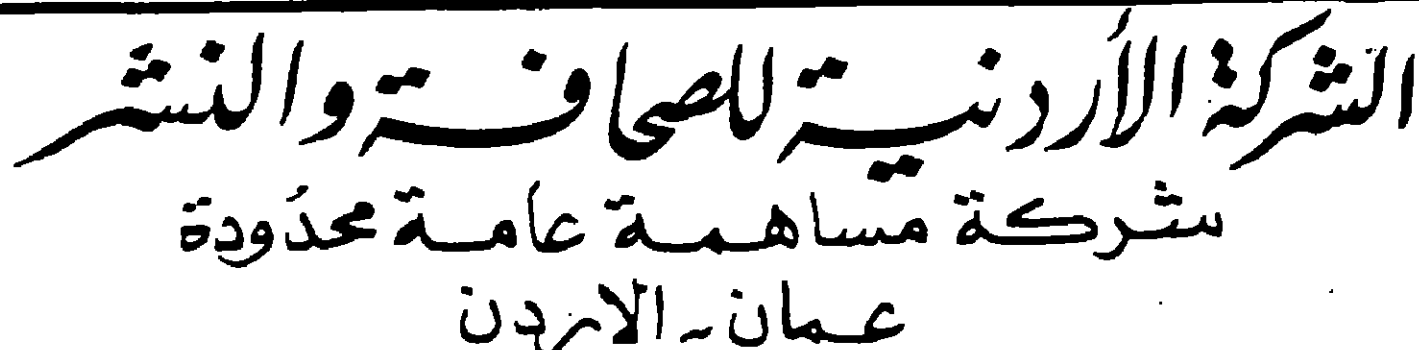 الشركة الأردنية للصحافة والنشر
شركة مساهمة عامة محدودة
عمان - الاردن